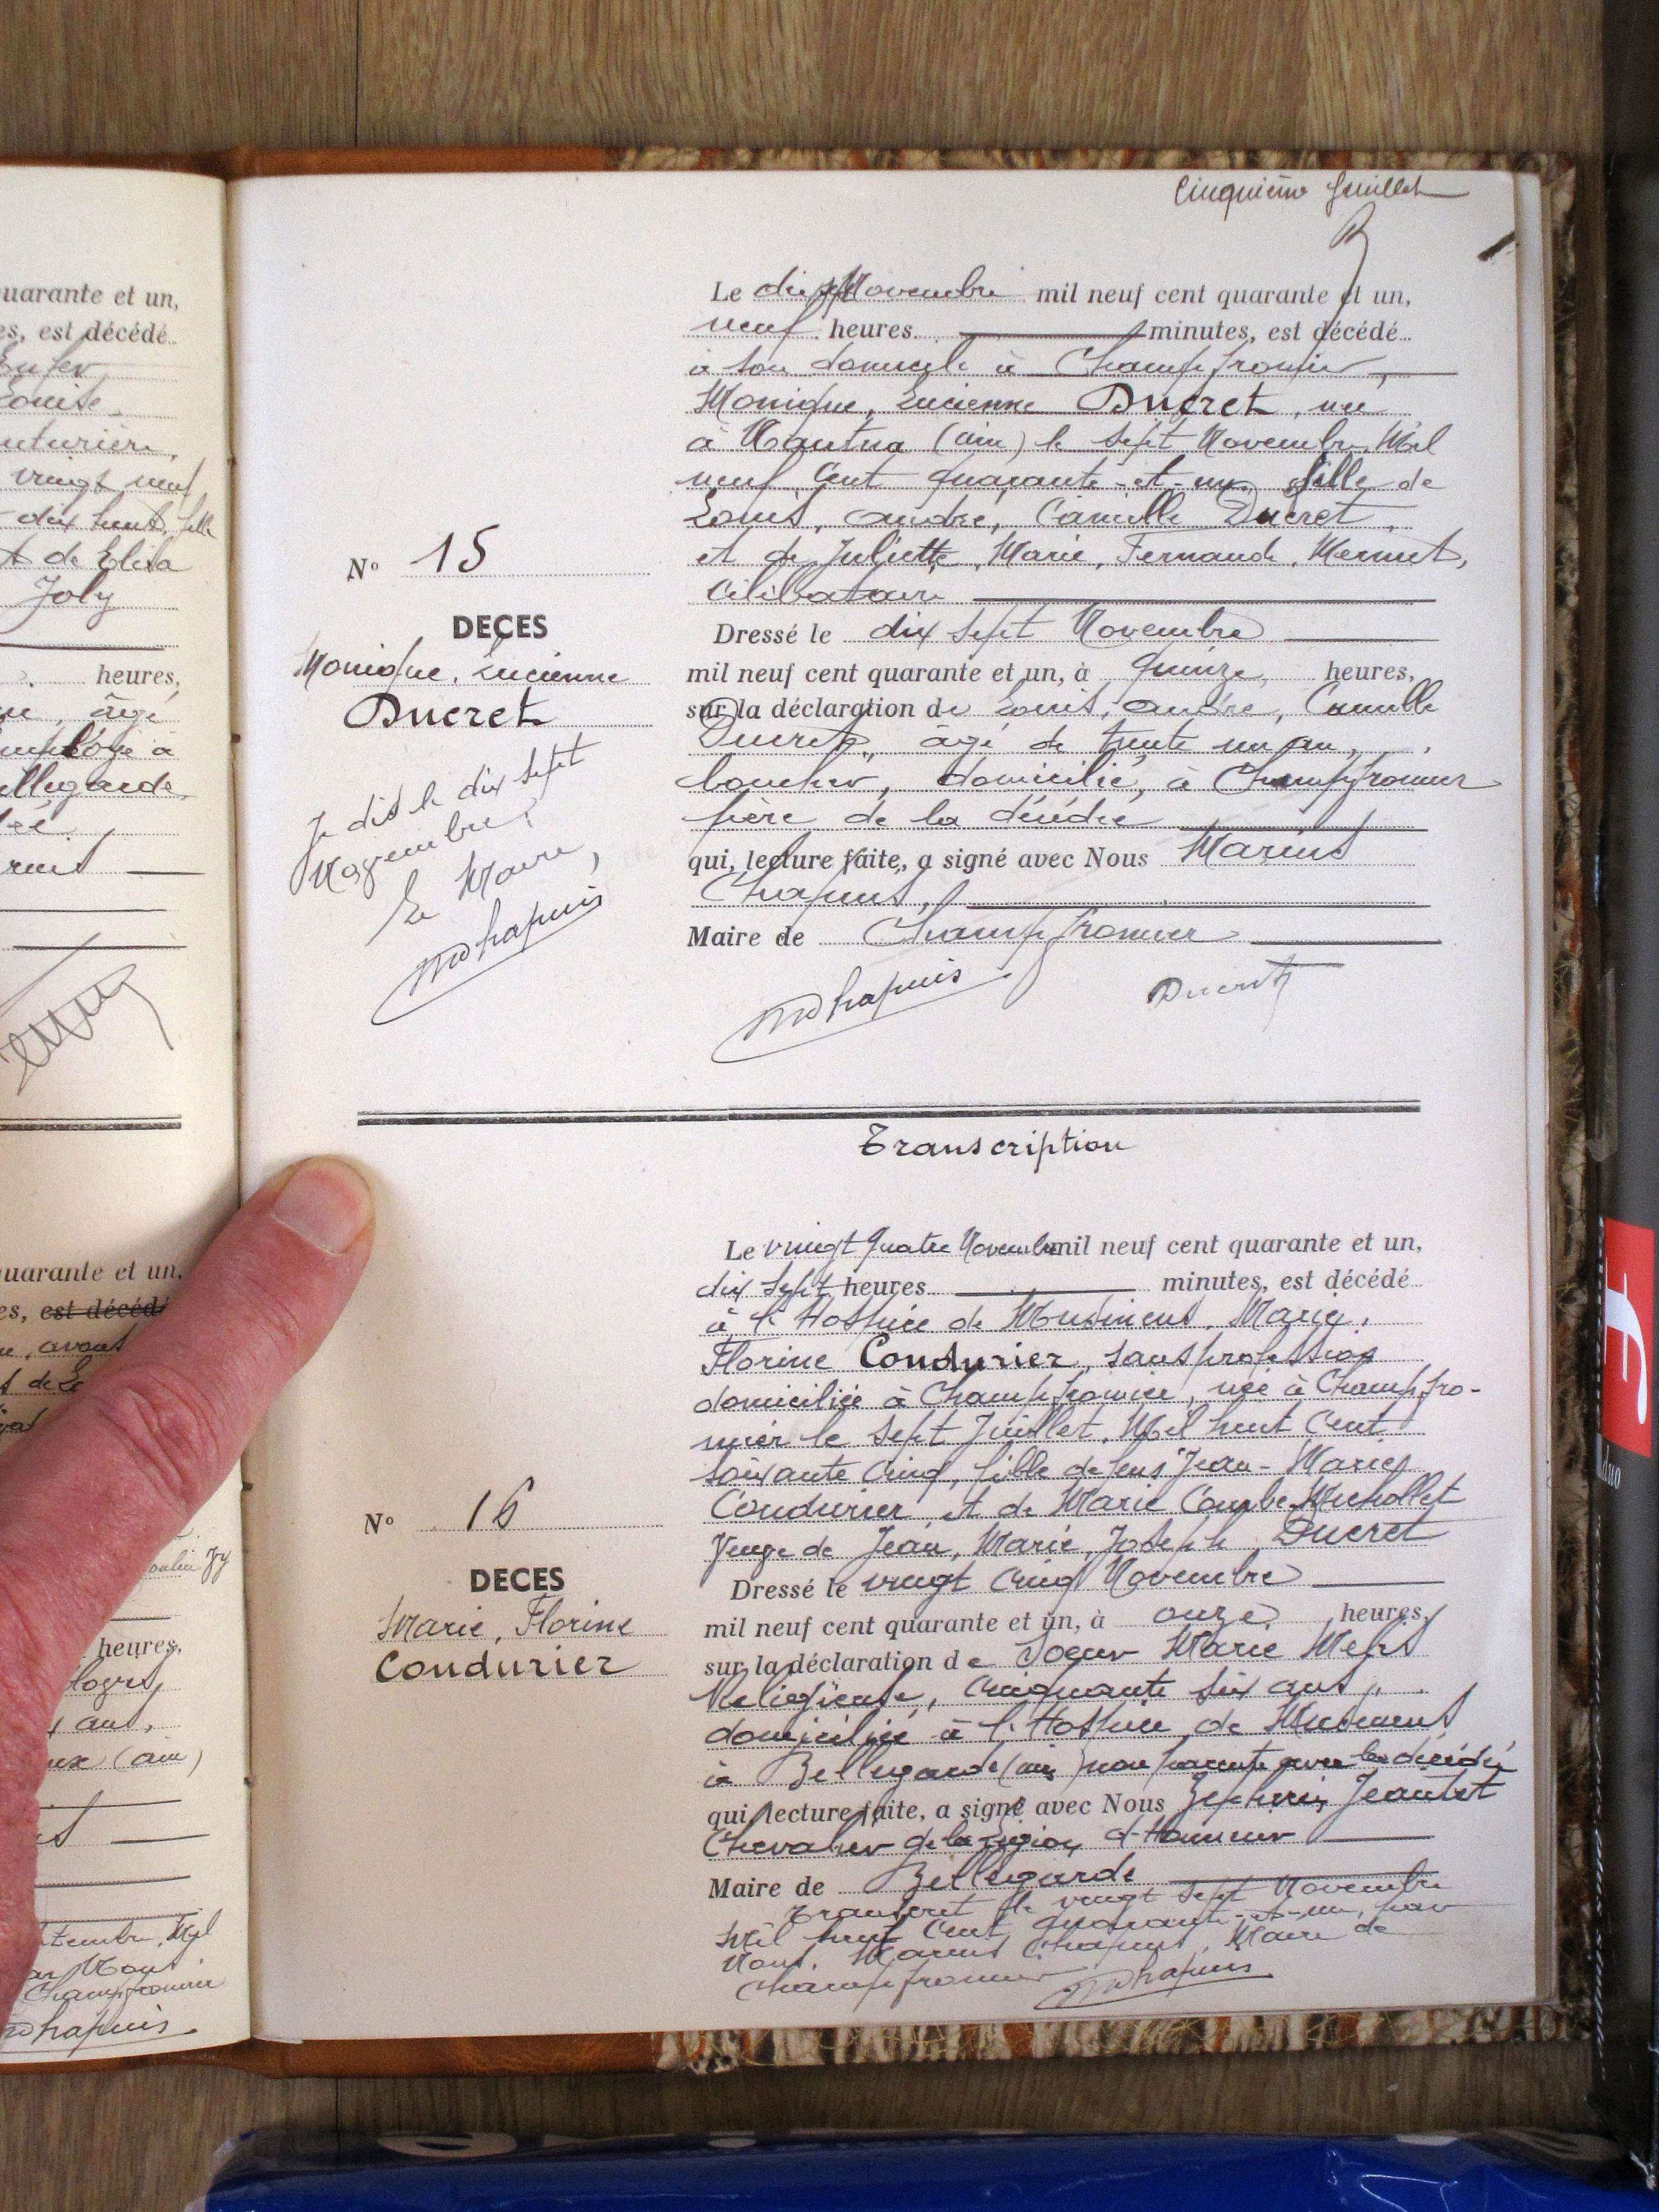 uarante et un,
es, est décédé
Louise
uturière,
vingt neuf
dix huit, fille
et de Elisa
Joly
heures,
âgé
employé à
ellegarde,
uarante et un,
es, est décédé
avons
heures,
ans,
ux (ain)
tembre, Mil
ar Nous
Champfromier
Chapuis
Cinquième feuillet
N° 15
DECES
Monique, Lucienne
Ducret
Je dis le dix sept
Novembre,
Le Maire,
MChapuis
Le dix sept Novembre mil neuf cent quarante et un,
neuf heures minutes, est décédé
à son domicile à Champfromier,
Monique, Lucienne Ducret, née
à Nantua (ain) le sept Novembre, Mil
neuf Cent quarante-et-un, fille de
Louis, André, Camille Ducret,
et de Juliette, Marie, Fernande, Mermet,
Célibataire
Dressé le dix sept Novembre
mil neuf cent quarante et un, à quinze heures,
sur la déclaration de Louis, André, Camille
Ducret, âgé de trente un an,
boucher, domicilié, à Champfromier
père de la décédée
qui, lecture faite, a signé avec Nous Marius
Chapuis,
Maire de Champfromier
MChapuis Ducret
Transcription
N° 16
DECES
Marie, Florine
Condurier
Le vingt quatre Novembre mil neuf cent quarante et un,
dix sept heures minutes, est décédé
à l'Hospice de Musinens, Marie,
Florine Condurier, sans profession
domiciliée à Champfromier, née à Champfro-
mier le sept Juillet, Mil huit Cent
soixante cinq, fille de feus Jean-Marie
Condurier, et de Marie Coutbe-Michollet
Veuve de Jean, Marie, Joseph, Ducret
Dressé le vingt cinq Novembre
mil neuf cent quarante et un, à onze heures,
sur la déclaration de Soeur Marie
Religieuse, cinquante six ans,
domiciliée à l'Hospice de Musinens
à Bellegarde (ain) non parente avec la décédée
qui, lecture faite, a signé avec Nous Zéphirin Jeantet
Chevalier de la Légion d'Honneur
Maire de Bellegarde
Transcrit le vingt sept Novembre
Mil huit Cent quarante-et-un, par
Nous, Marius Chapuis, Maire de
Champfromier MChapuis
duo